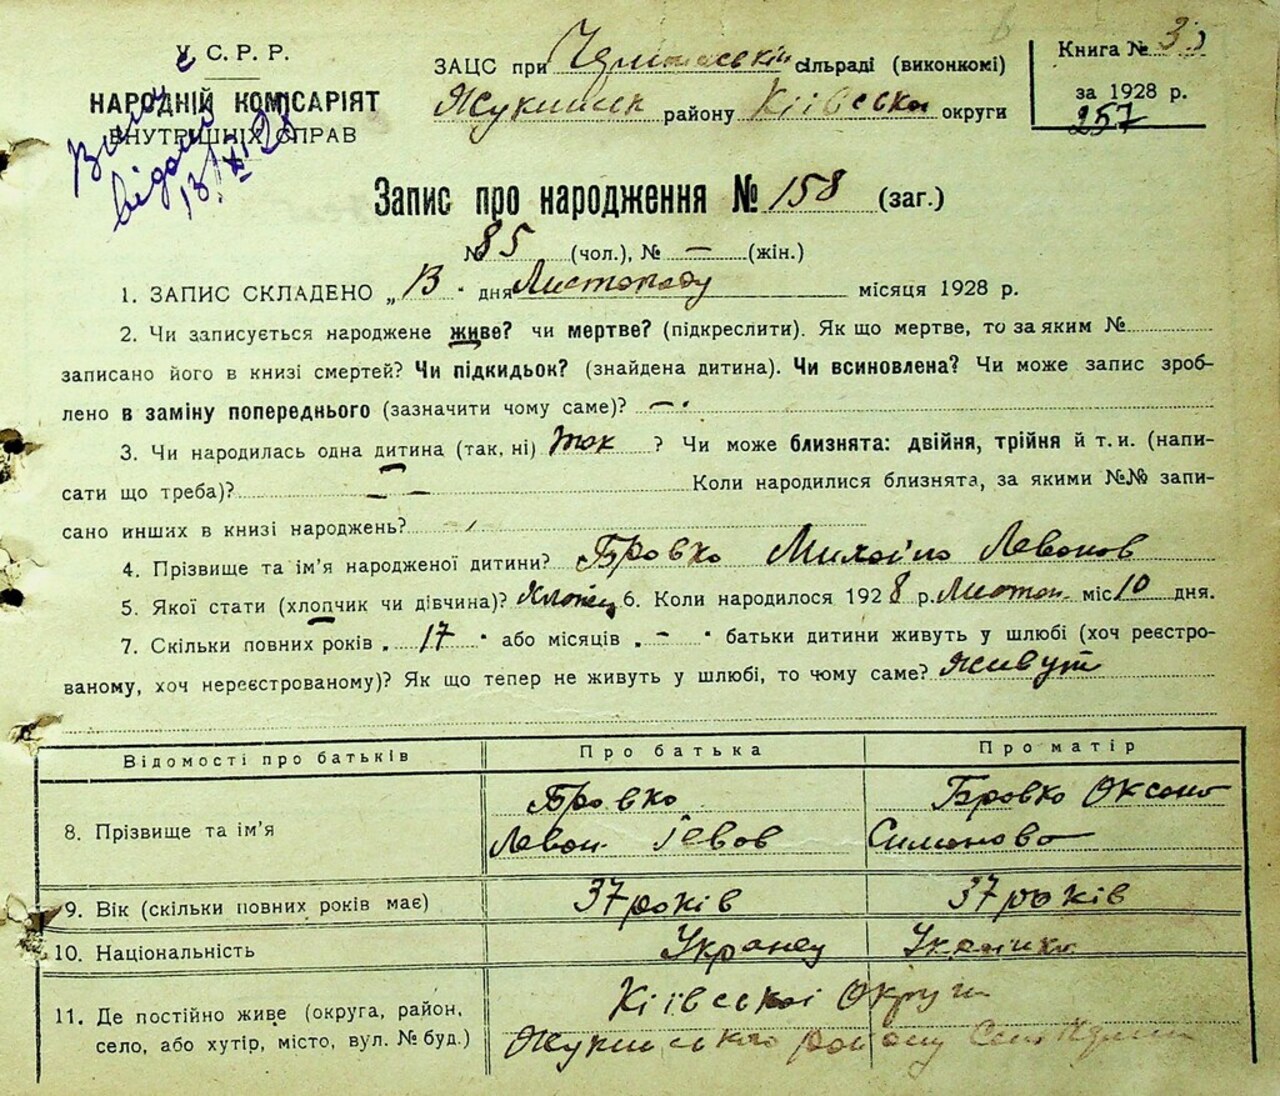 У. С. Р. Р.
НАРОДНІЙ КОМІСАРІЯТ
ВНУТРІШНІХ СПРАВ
13/XI 28
ЗАЦС при сільраді (виконкомі)
району Київської округи
Книга № 3
за 1928 р.
257
Запис про народження № 158 (заг.)
№ 85 (чол.), № — (жін.)
1. ЗАПИС СКЛАДЕНО „13" дня Листопаду місяця 1928 р.
2. Чи записується народжене живе? чи мертве? (підкреслити). Як що мертве, то за яким №
записано його в книзі смертей? Чи підкидьок? (знайдена дитина). Чи всиновлена? Чи може запис зроб-
лено в заміну попереднього (зазначити чому саме)? —
3. Чи народилась одна дитина (так, ні) так ? Чи може близнята: двійня, трійня й т. и. (напи-
сати що треба)? — — Коли народилися близнята, за якими №№ запи-
сано инших в книзі народжень?
4. Прізвище та ім'я народженої дитини? Бровко Михайло Левонов
5. Якої стати (хлопчик чи дівчина)? Хлопец 6. Коли народилося 1928 р. Листоп. міс 10 дня.
7. Скільки повних років „17" або місяців „—" батьки дитини живуть у шлюбі (хоч реєстро-
ваному, хоч нереєстрованому)? Як що тепер не живуть у шлюбі, то чому саме? Живут
Відомості про батьків Про батька Про матір
8. Прізвище та ім'я Бровко Левон Бровко Оксана Симонова
9. Вік (скільки повних років має) 37 років 37 років
10. Національність Укранец
11. Де постійно живе (округа, район, Київської Округи
село, або хутір, місто, вул. № буд.) району Село